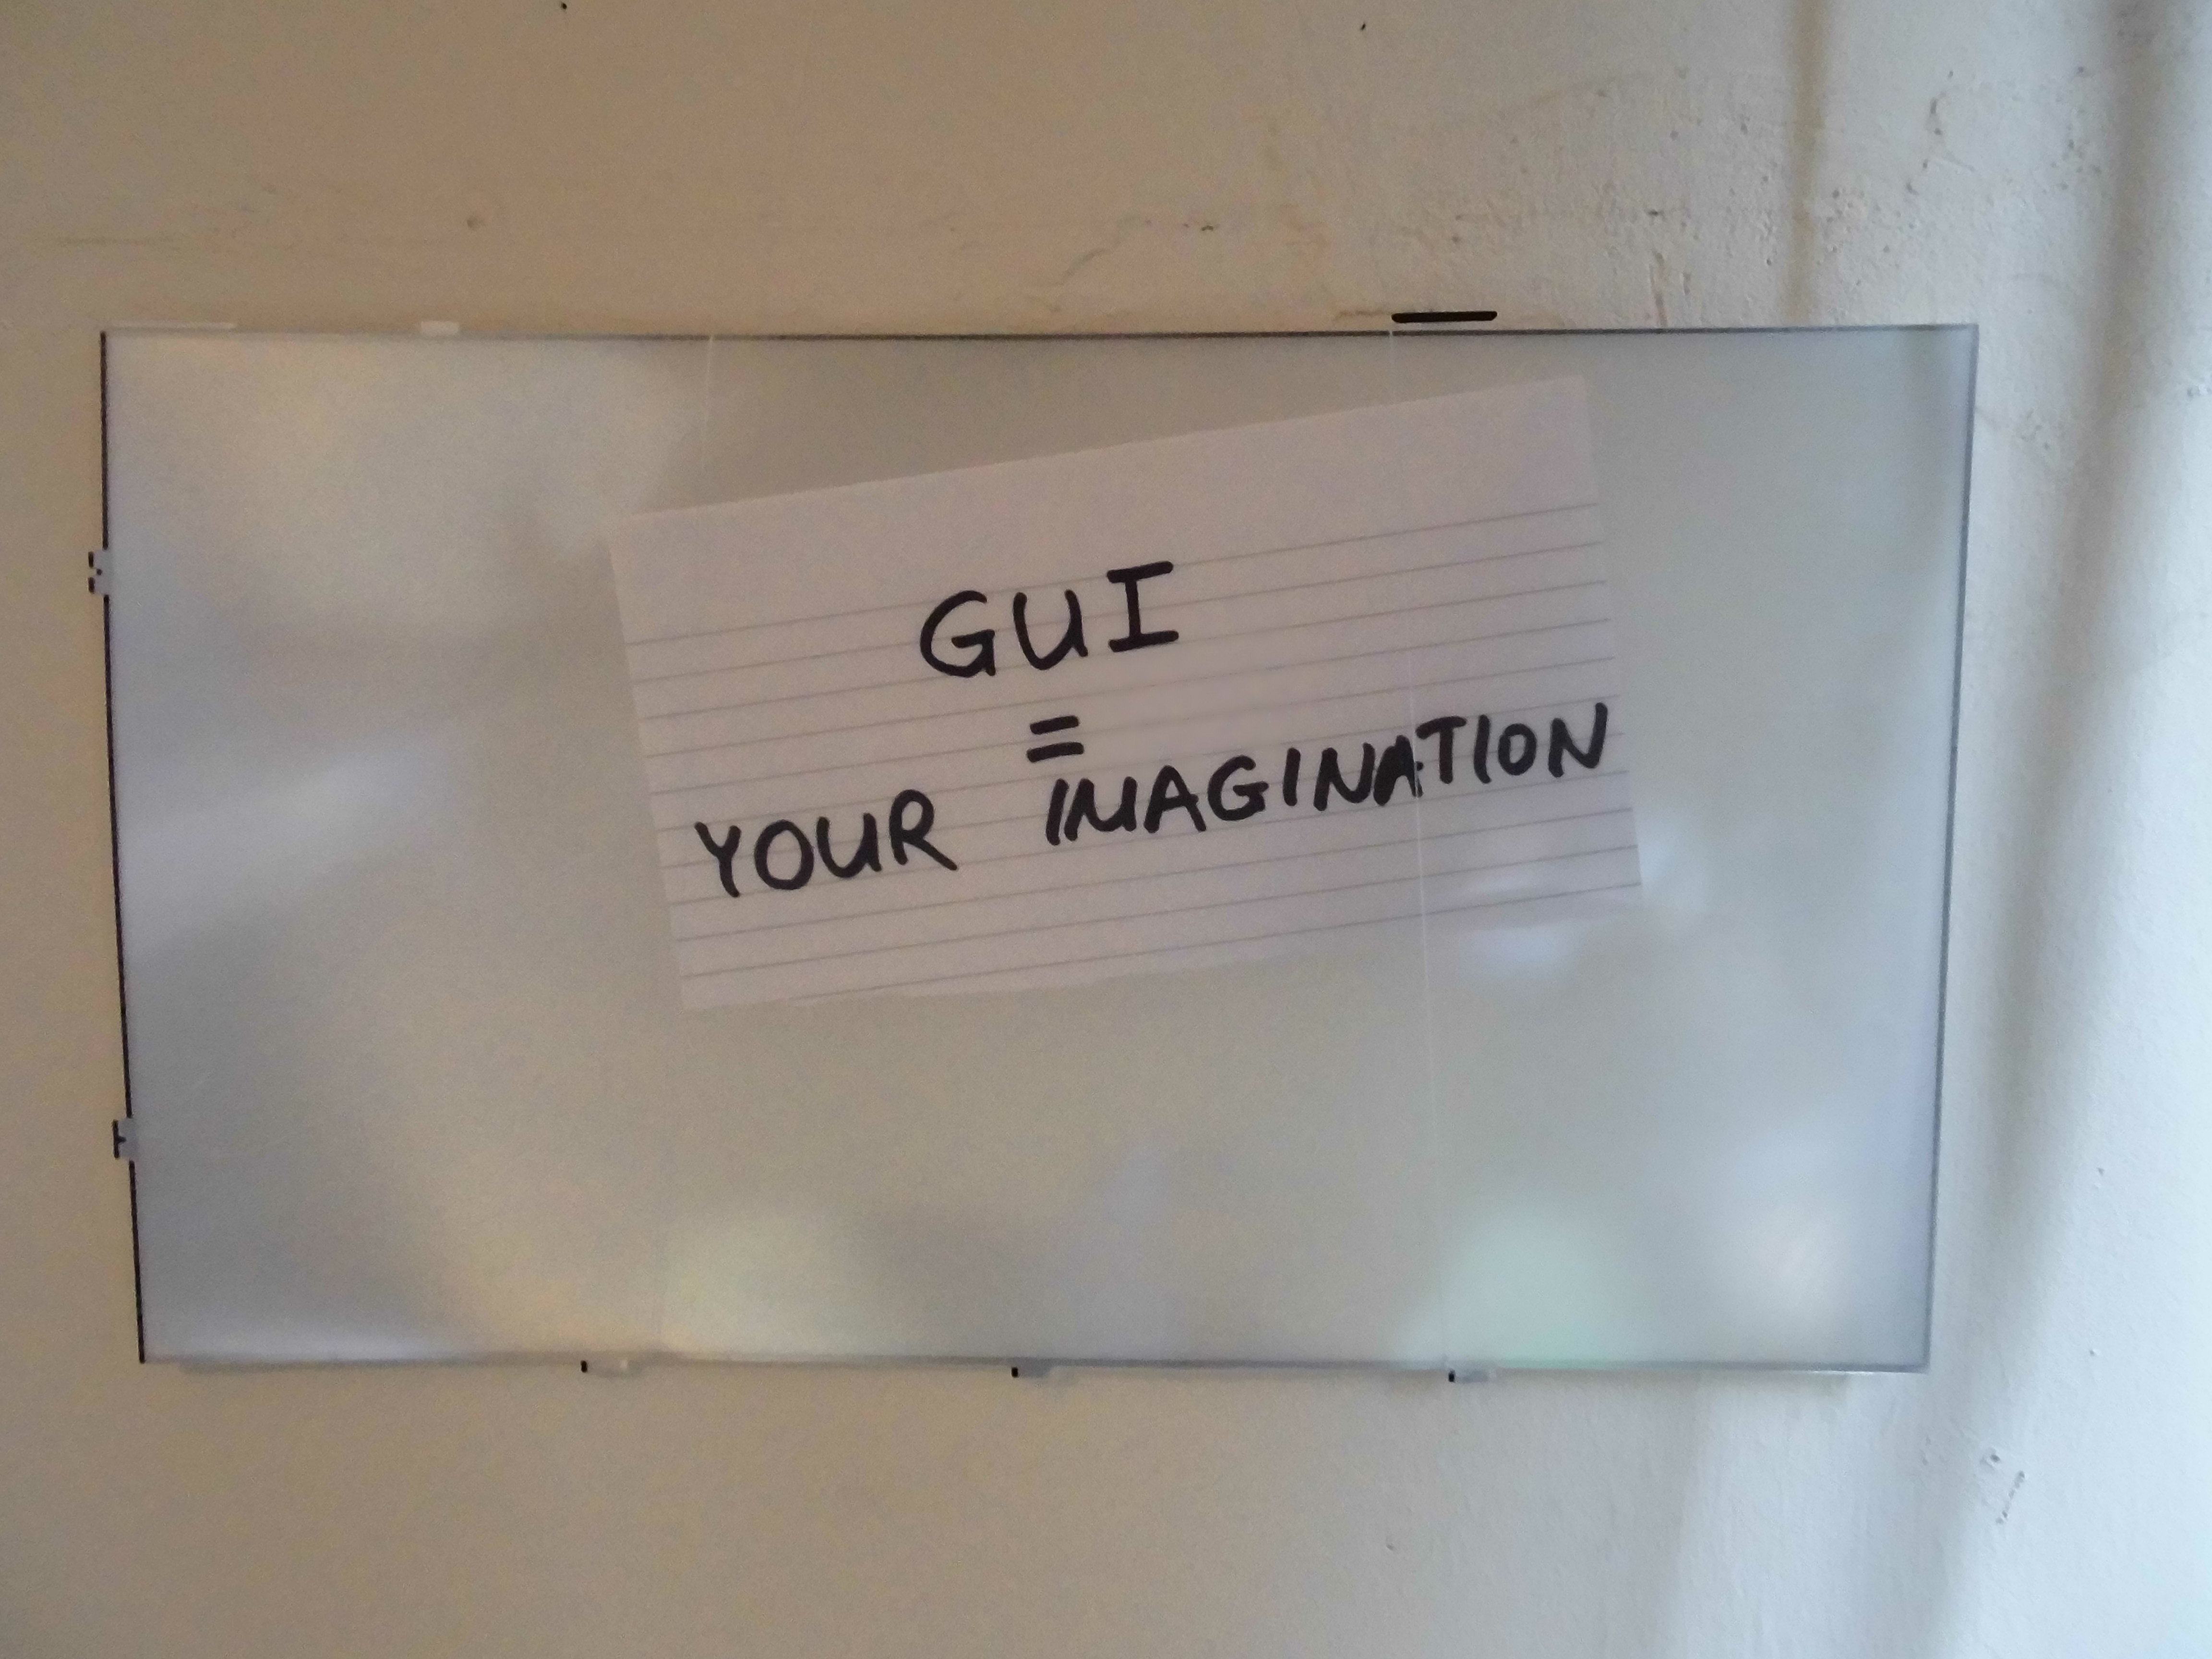 GUI
=
YOUR IMAGINATION